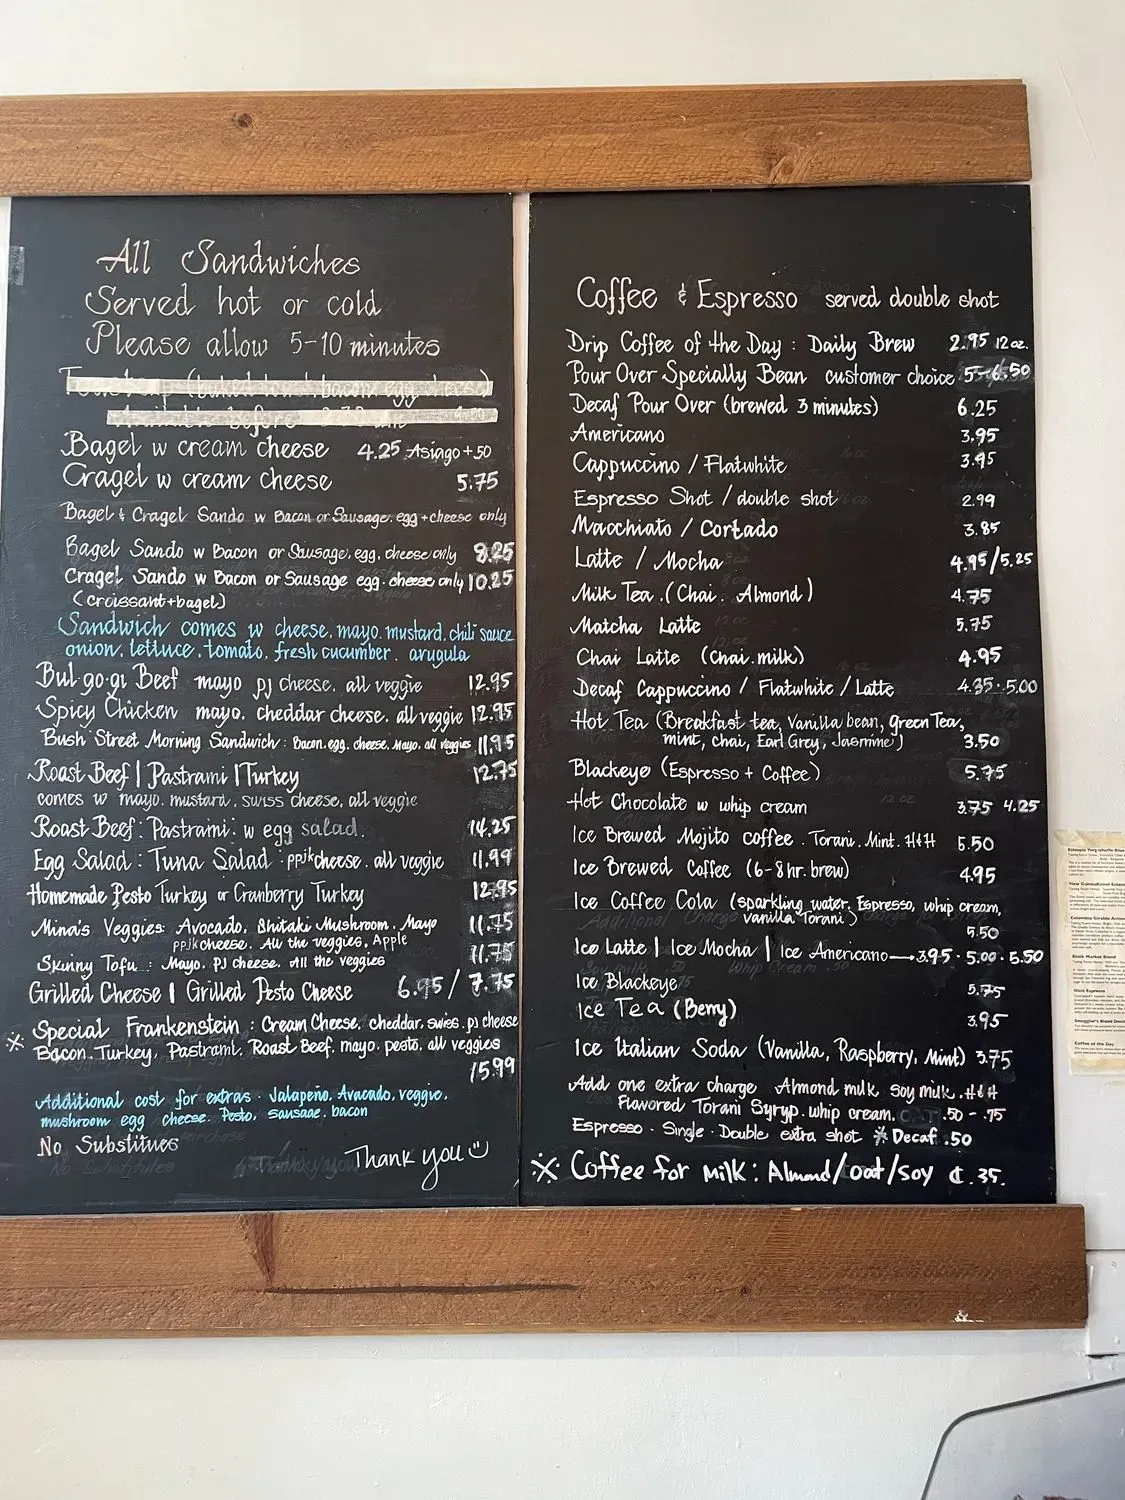 All Sandwiches
Served hot or cold
Please allow 5-10 minutes
Bagel w cream cheese 4.25 Asiago +50
Cragel w cream cheese 5.75
Bagel & Cragel Sando w Bacon or Sausage. egg + cheese only
Bagel Sando w Bacon or Sausage, egg, cheese only 8.25
Cragel Sando w Bacon or Sausage egg. cheese only 10.25
(croissant+bagel)
Sandwich comes w cheese, mayo, mustard, chili sauce
onion, lettuce, tomato, fresh cucumber, arugula
Bul·go·gi Beef mayo pj cheese, all veggie 12.95
Spicy Chicken mayo. cheddar cheese. all veggie 12.95
Bush Street Morning Sandwich: Bacon, egg, cheese, Mayo, all veggies 11.95
Roast Beef | Pastrami | Turkey 12.75
comes w mayo. mustard, swiss cheese, all veggie
Roast Beef: Pastrami: w egg salad. 14.25
Egg Salad: Tuna Salad · ppjk cheese. all veggie 11.99
Homemade Pesto Turkey or Cranberry Turkey 12.95
Mina's Veggies: Avocado, Shitaki Mushroom, Mayo 11.75
ppjk cheese. All the veggies, Apple
Skinny Tofu: Mayo. PJ cheese. All the veggies 11.75
Grilled Cheese | Grilled Pesto Cheese 6.95 / 7.75
※ Special Frankenstein: Cream Cheese, cheddar, swiss. pj cheese
Bacon. Turkey, Pastrami, Roast Beef, mayo. pesto, all veggies
15.99
Additional cost for extras · Jalapeño, Avacado, veggie,
mushroom egg cheese Pesto, sausage, bacon
No Substitues
Thank you
Coffee & Espresso served double shot
Drip Coffee of the Day: Daily Brew 2.95 12 oz.
Pour Over Specially Bean customer choice 5-6.50
Decaf Pour Over (brewed 3 minutes) 6.25
Americano 3.95
Cappuccino / Flatwhite 3.95
Espresso Shot / double shot 2.99
Macchiato / Cortado 3.85
Latte / Mocha 4.95/5.25
Milk Tea (Chai. Almond) 4.75
Matcha Latte 5.75
Chai Latte (Chai.milk) 4.95
Decaf Cappuccino / Flatwhite / Latte 4.35 · 5.00
Hot Tea (Breakfast tea, Vanilla bean, green Tea,
mint, chai, Earl Grey, Jasmine) 3.50
Blackeye (Espresso + Coffee) 5.75
Hot Chocolate w whip cream 3.75 4.25
Ice Brewed Mojito coffee. Torani. Mint. H&H 5.50
Ice Brewed Coffee (6-8 hr. brew) 4.95
Ice Coffee Cola (sparkling water, Espresso, whip cream,
vanilla Torani) 5.50
Ice Latte | Ice Mocha | Ice Americano — 3.95 · 5.00 · 5.50
Ice Blackeye 5.75
Ice Tea (Berry) 3.95
Ice Italian Soda (Vanilla, Raspberry, Mint) 3.75
Add one extra charge Almond milk, soy milk. H&H
Flavored Torani Syryp. whip cream. .50 - .75
Espresso · Single · Double extra shot ※ Decaf .50
※ Coffee for Milk: Almond/oat/soy ¢ .35.